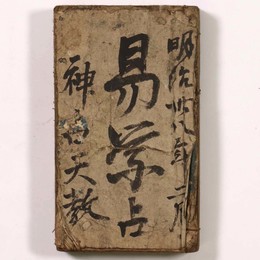 明治廿八年二月
易学占
神
天教